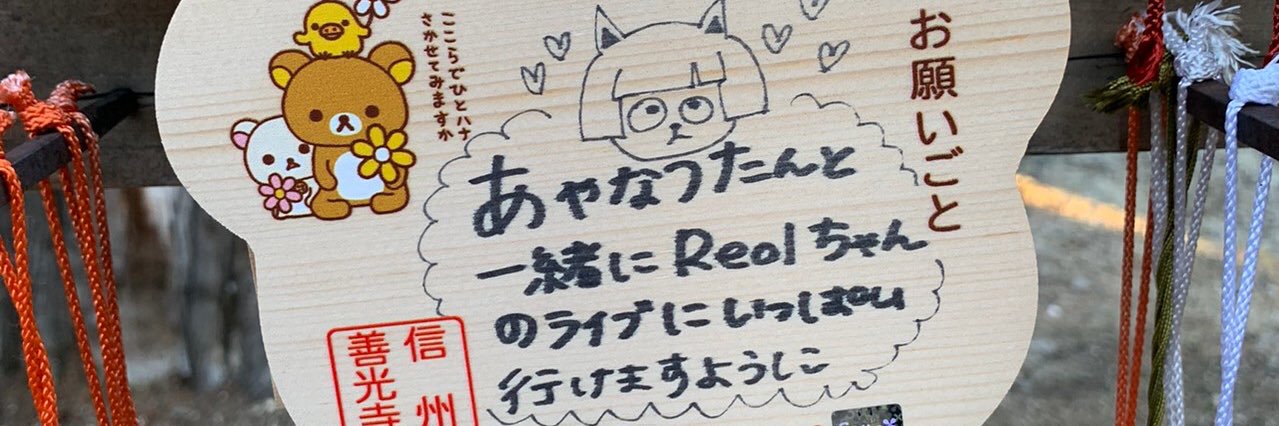 お願いごと
ここらでひとハナ
さかせてみますか
あやなつたんと
一緒にReolちゃん
のライブにいっぱい
行けますように
信州
善光寺